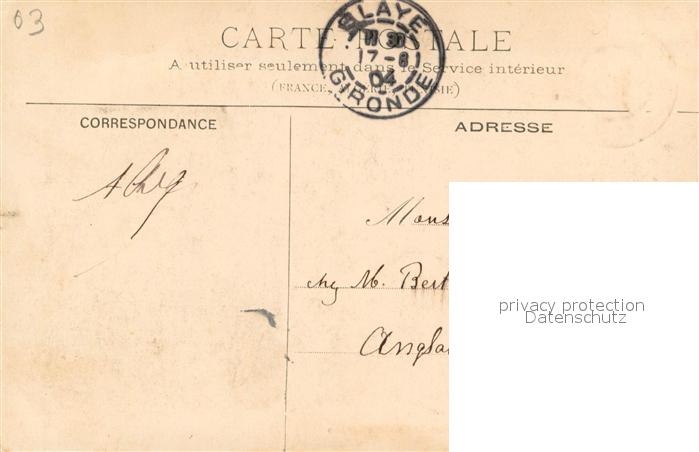 03
CARTE POSTALE
A utiliser seulement dans le Service intérieur
(FRANCE,
BLAYE
17-8
04
GIRONDE
CORRESPONDANCE
ADRESSE
Mons
chez M. Bert
Angla
privacy protection
Datenschutz